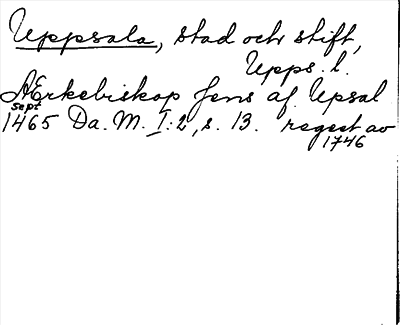 Uppsala, stad och stift,
Upps. l.
Ærkebiskop Jens af Upsal
sept
1465 Da. M. I:2, s. 13. regest av
1746